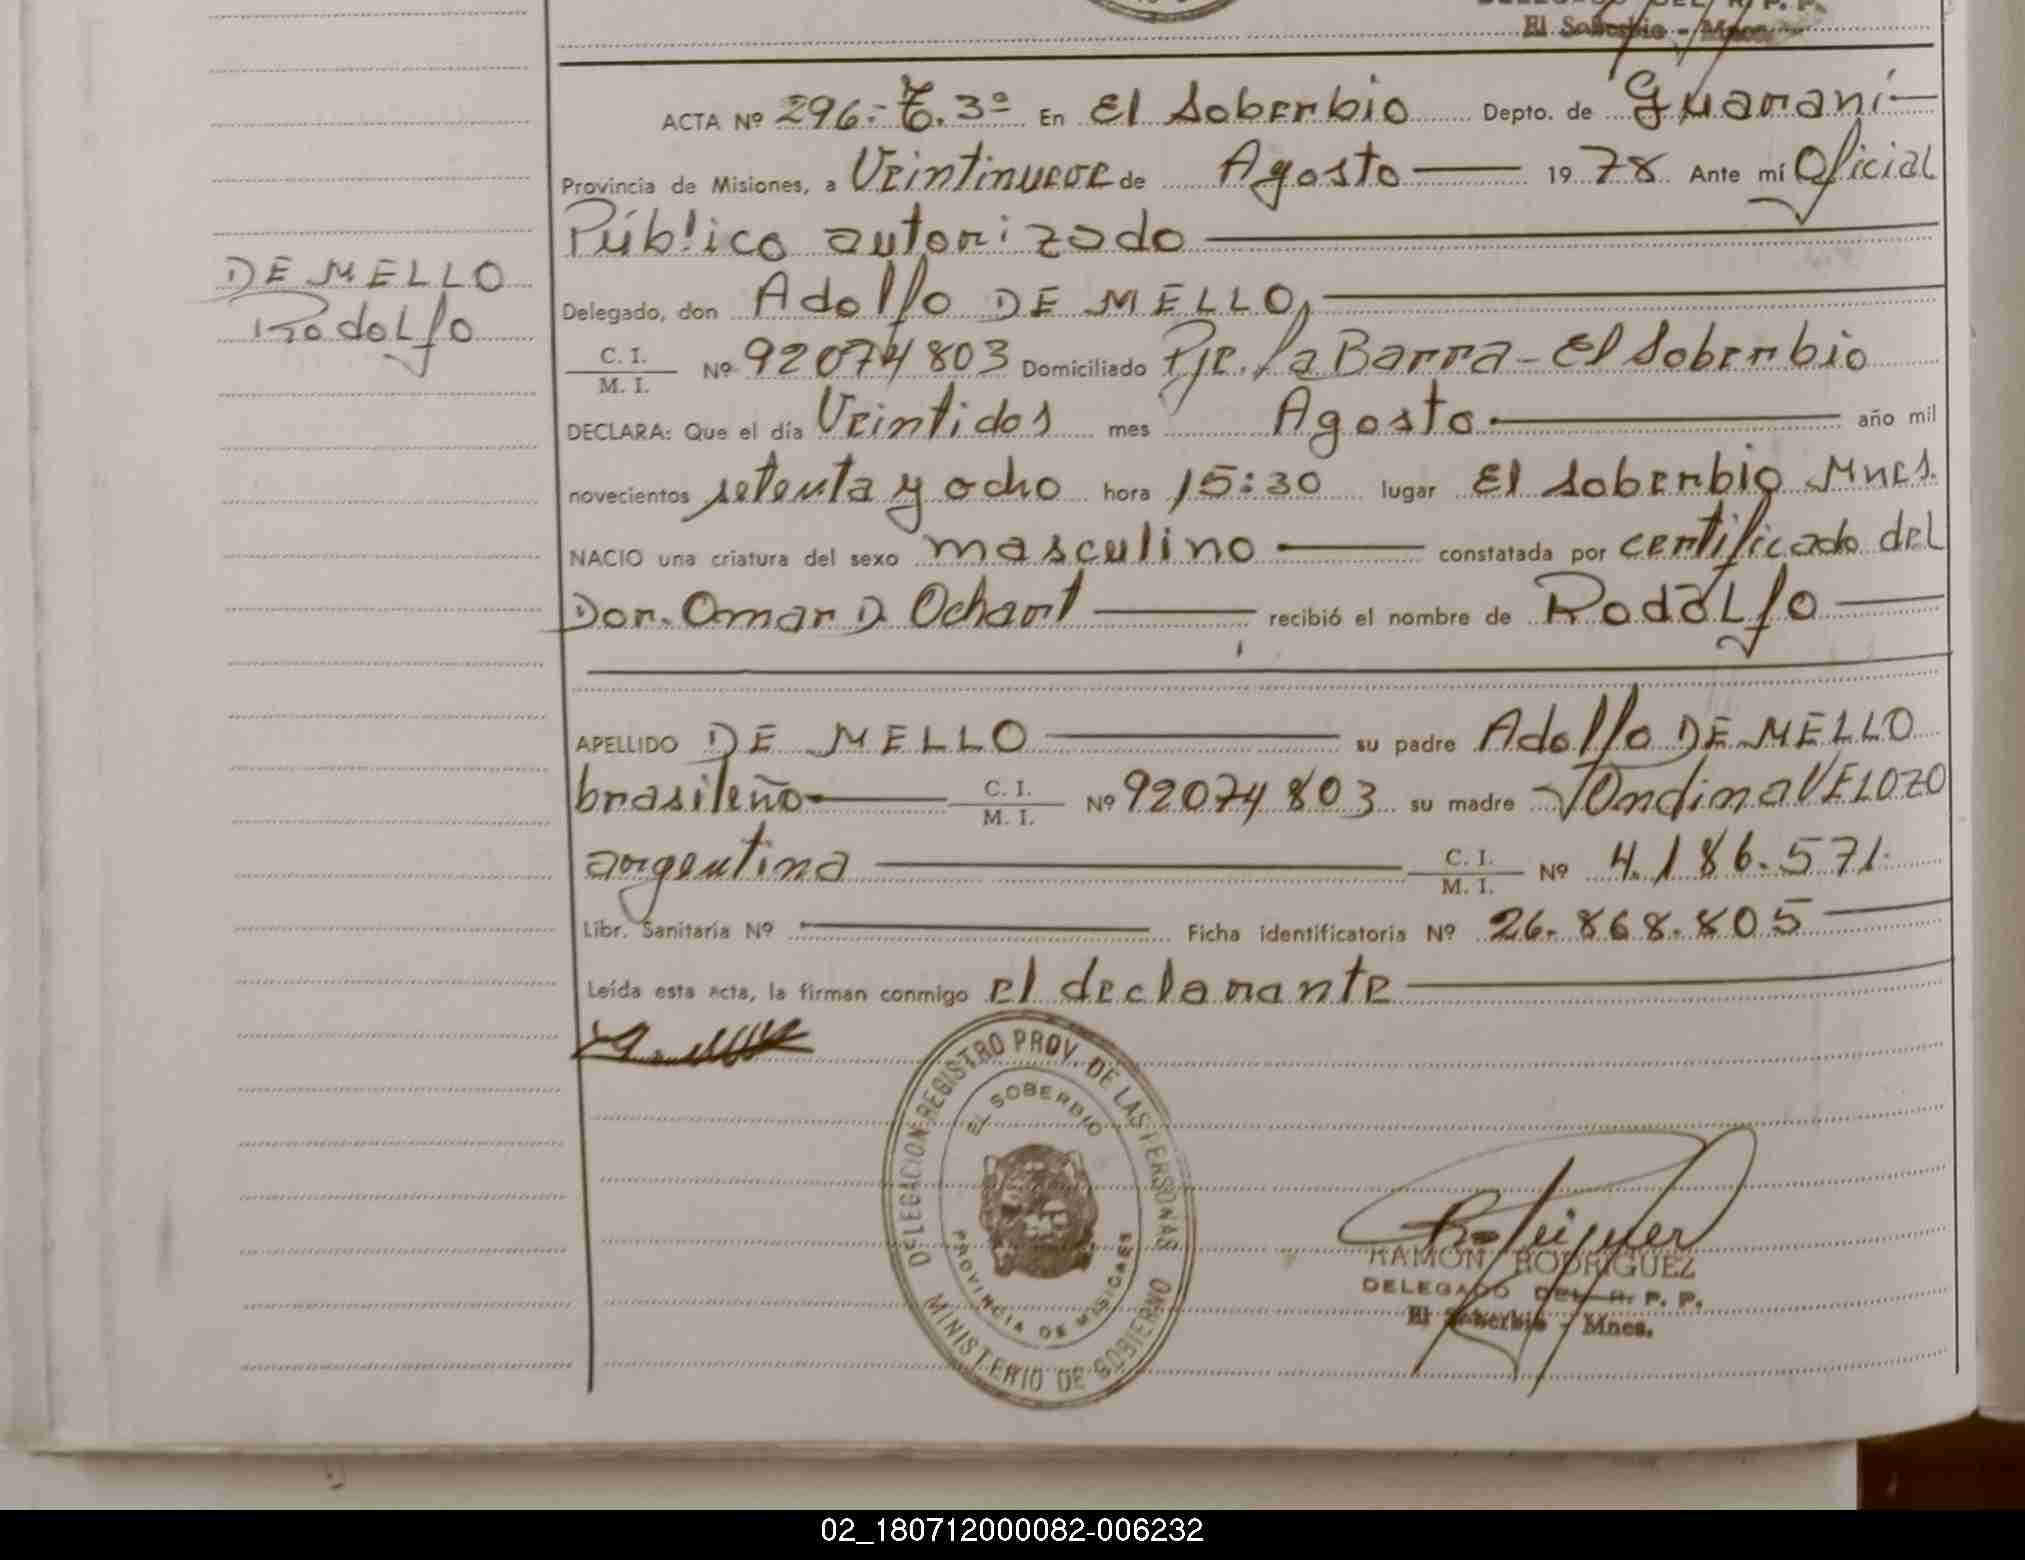 El Soberbio - Mnes.
ACTA Nº 296.- T. 3º En El Soberbio Depto. de Guaraní
Provincia de Misiones, a Veintinueve de Agosto 1978 Ante mí Oficial
Público autorizado
DE MELLO
Rodolfo
Delegado, don Adolfo DE MELLO,
C. I.
M. I. Nº 92074803 Domiciliado Pje. La Barra - El Soberbio
DECLARA: Que el día Veintidos mes Agosto año mil
novecientos setenta y ocho hora 15:30 lugar El Soberbio Mnes.
NACIO una criatura del sexo masculino constatada por certificado del
Dor. Omar D. Ochart recibió el nombre de Rodolfo
APELLIDO DE MELLO su padre Adolfo DE MELLO
brasileño C. I.
M. I. Nº 92074803 su madre Ondina VELOZO
argentina C. I.
M. I. Nº 4.186.571.
Libr. Sanitaria Nº Ficha identificatoria Nº 26.868.805
Leída esta acta, la firman conmigo el declarante
DELEGACION REGISTRO PROV. DE LAS PERSONAS
EL SOBERBIO
PROVINCIA DE MISIONES
MINISTERIO DE GOBIERNO
RAMON RODRIGUEZ
DELEGADO DEL R. P. P.
El Soberbio - Mnes.
02_180712000082-006232